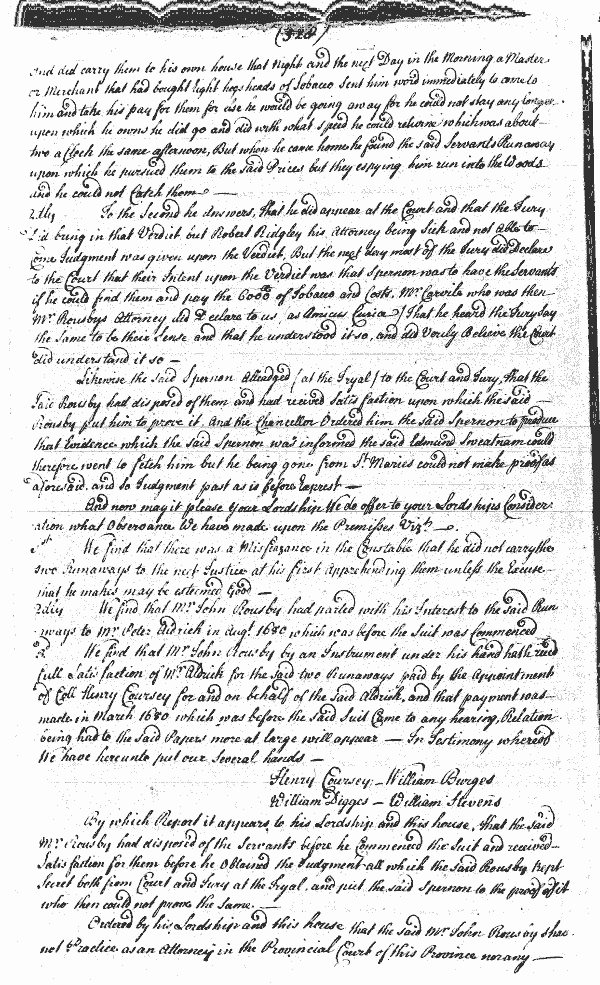 (324)
and did carry them to his own house that Night and the next Day in the Morning a Master
or Merchant that had bought light hogsheads of Tobacco sent him word immediately to come to
him and take his pay for them for else he would be going away for he could not stay any longer
upon which he owns he did go and did with what speed he could returne which was about
two a Clock the same afternoon, But when he came home he found the said Servants Runaway
upon which he pursued them to the said Prices but they espying him run into the Woods
and he could not Catch them —
2dly To the Second he Answers, that he did appear at the Court and that the Jury
did bring in that Verdict, but Robert Ridgley his Attorney being Sick and not Able to
Come Judgment was given upon the Verdict, But the next day most of the Jury did Declare
to the Court that their Intent upon the Verdict was that Spernon was to have the Servants
if he could find them and pay the 6000 of Tobacco and Costs. Mr. Carvile who was then
Mr. Rousbys Attorney did Declare to us, as Amicus Curiæ / that he heard the Jury say
the same to be their Sense and that he understood it so, and did Verily Believe the Court
did understand it so —
Likewise the said Spernon Alleadged / at the Tryal / to the Court and Jury, that the
said Rousby had disposed of them and had received Satisfaction upon which the said —
Rousby put him to prove it, And the Chancellor Ordered him the said Spernon to produce
that Evidence which the Said Spernon was informed the said Edmund Sweatnam could
therefore went to fetch him but he being gone from St. Maries could not make proof as
aforesaid, and so Judgment past as is before Exprest —
And now may it please Your Lordship We do offer to your Lordships Consider-
ation what Observance We have made upon the Premisses Vizt. —
1st We find that there was a Misfeazance in the Constable that he did not carry the
two Runaways to the next Justice at his first Apprehending them unless the Excuse
that he makes may be esteemed Good —
2dly We find that Mr. John Rousby had parted with his Interest to the said Run
aways to Mr. Peter Aldrick in Augt. 1680 which was before the Suit was Commenced
3d We find that Mr. John Rousby by an Instrument under his hand hath reced
full Satisfaction of Mr. Aldrick for the said two Runaways paid by the Appointment
of Coll Henry Coursey for and on behalf of the Said Aldrick, and that payment was
made in March 1680 which was before the Said Suit Came to any hearing, Relation
being had to the Said Papers more at large will appear — In Testimony whereof
We have hereunto put our Several hands —
Henry Coursey — William Burges
William Digges — William Stevens
By which Report it appears to his Lordship and this house, that the Said
Mr. Rousby had disposed of the Servants before he Commenced the Suit and received
Satisfaction for them before he Obtained the Judgment all which the Said Rousby kept
Secret both from Court and Jury at the Tryal, and put the said Spernon to the proof of it
who then could not prove the Same. —
Ordered by his Lordship and this house that the said Mr. John Rousby shall
not Practice as an Attorney in the Provincial Court of this Province nor any —